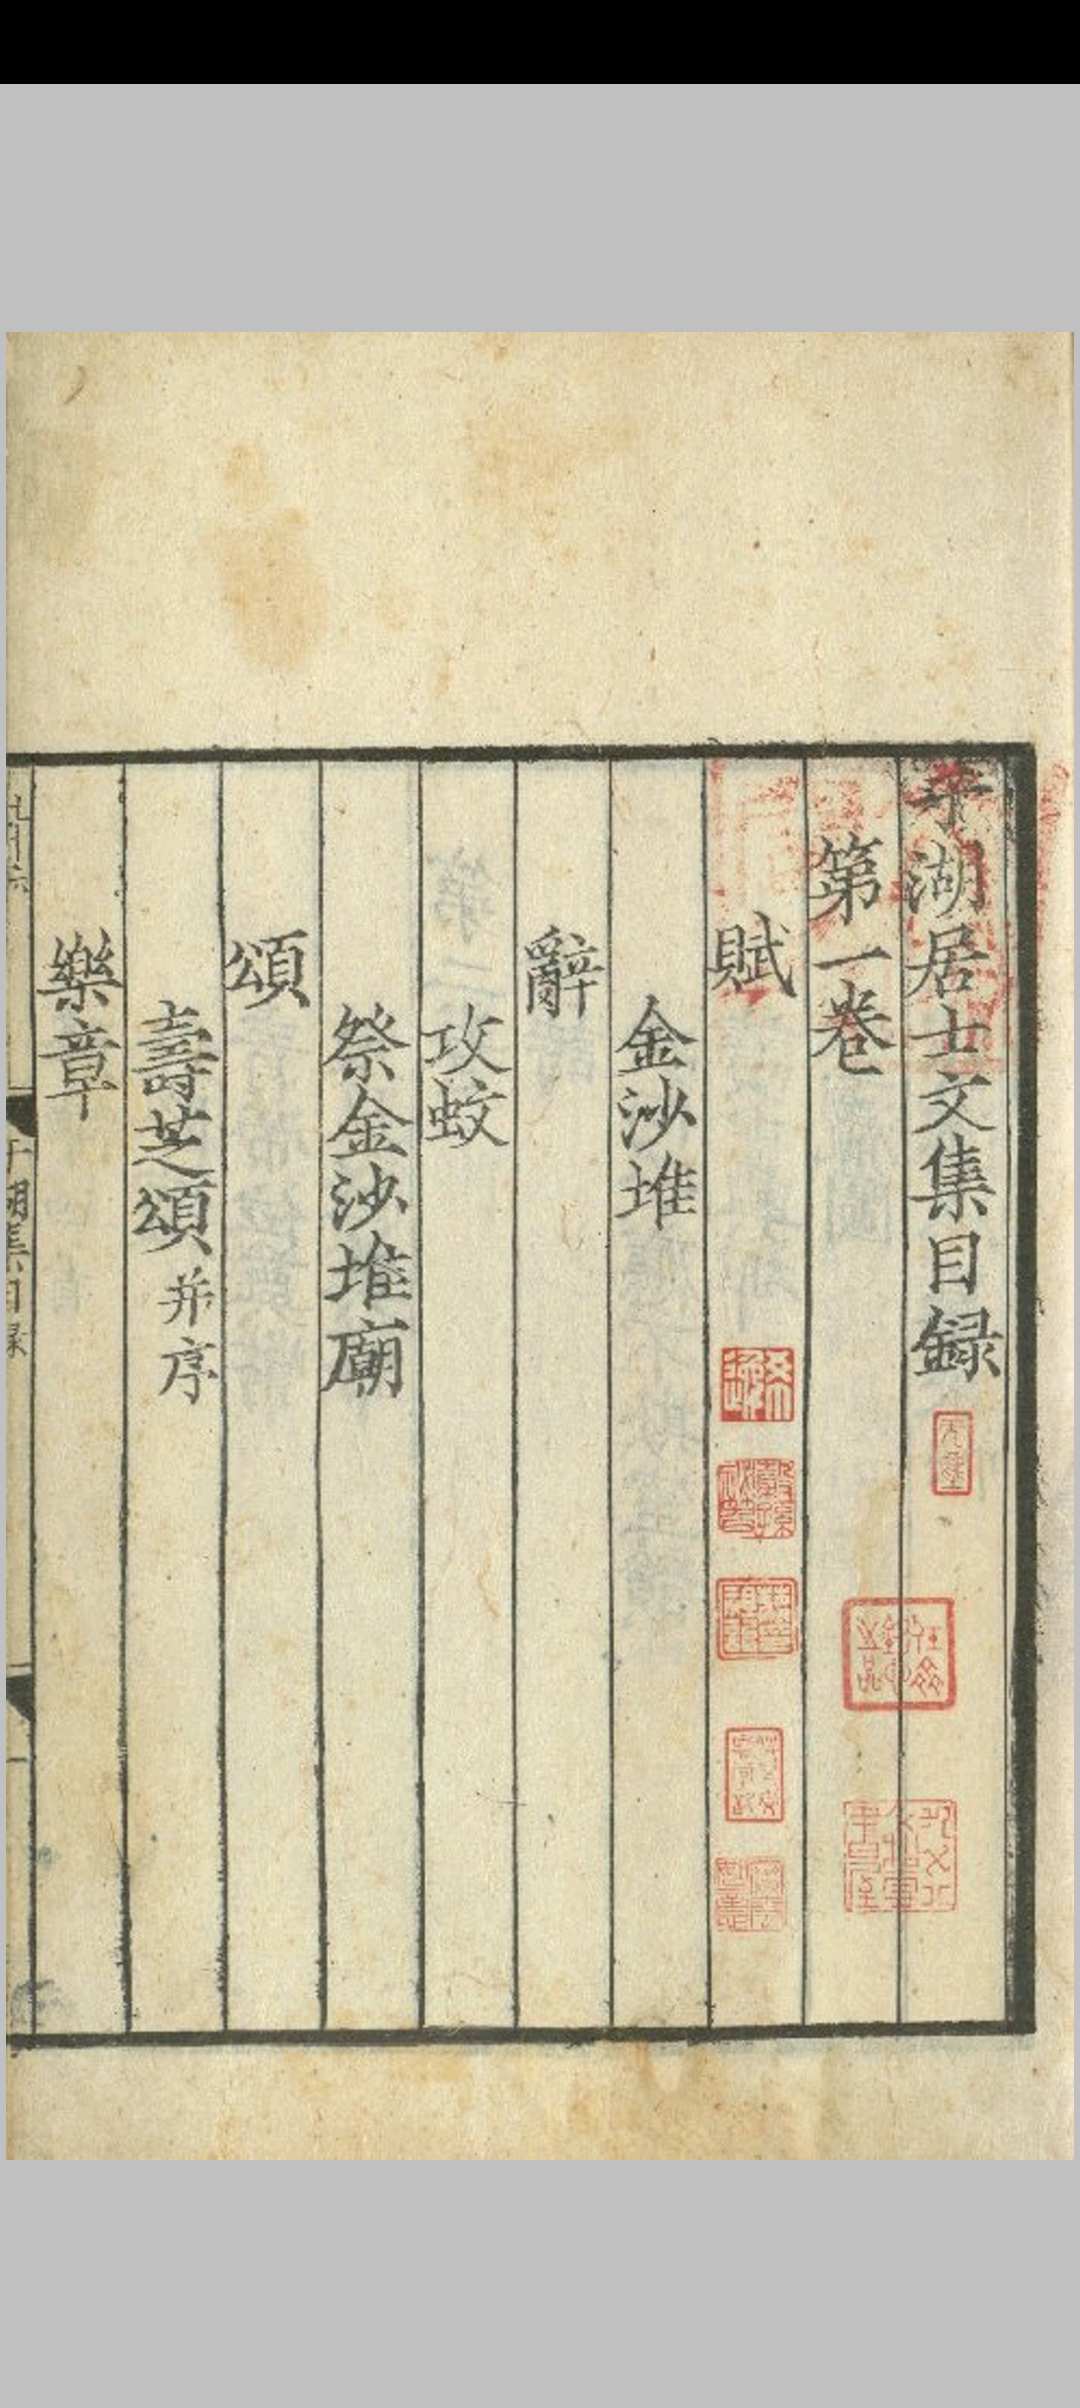 于湖居士文集目録
第一卷
賦
金沙堆
辭
攻蚊
祭金沙堆廟
頌
壽芝頌 并序
樂章
于湖集目录
一